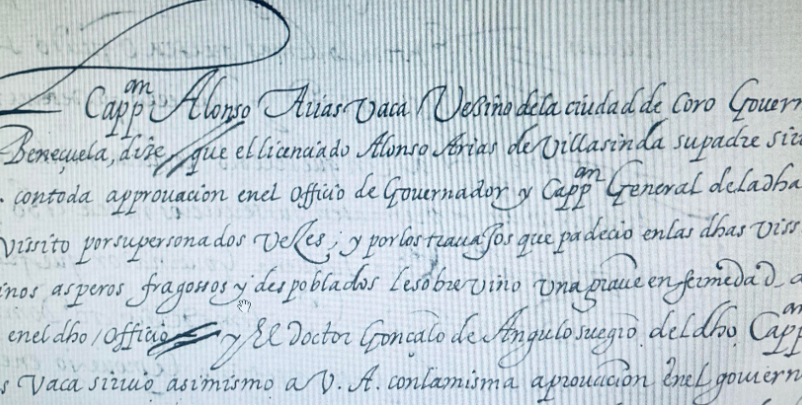 Cappan Alonso Arias Vaca Vezino dela ciudad de Coro Gouern
Beneçuela, dize que el licenciado Alonso Arias de Villasinda su padre siru
con toda aprouacion enel Officio de Gouernador y Cappan General dela dha
Vissito por su persona dos Vezes; y por los trauajos que padecio en las dhas Viss
inos asperos fragossos y despoblados le sobre vino Una graue enfermedad
enel dho Officio y El Doctor Gonçalo de Angulo suegro del dho Capp
s Vaca siruio asimismo a V. A. con la misma aprouacion enel gouiern